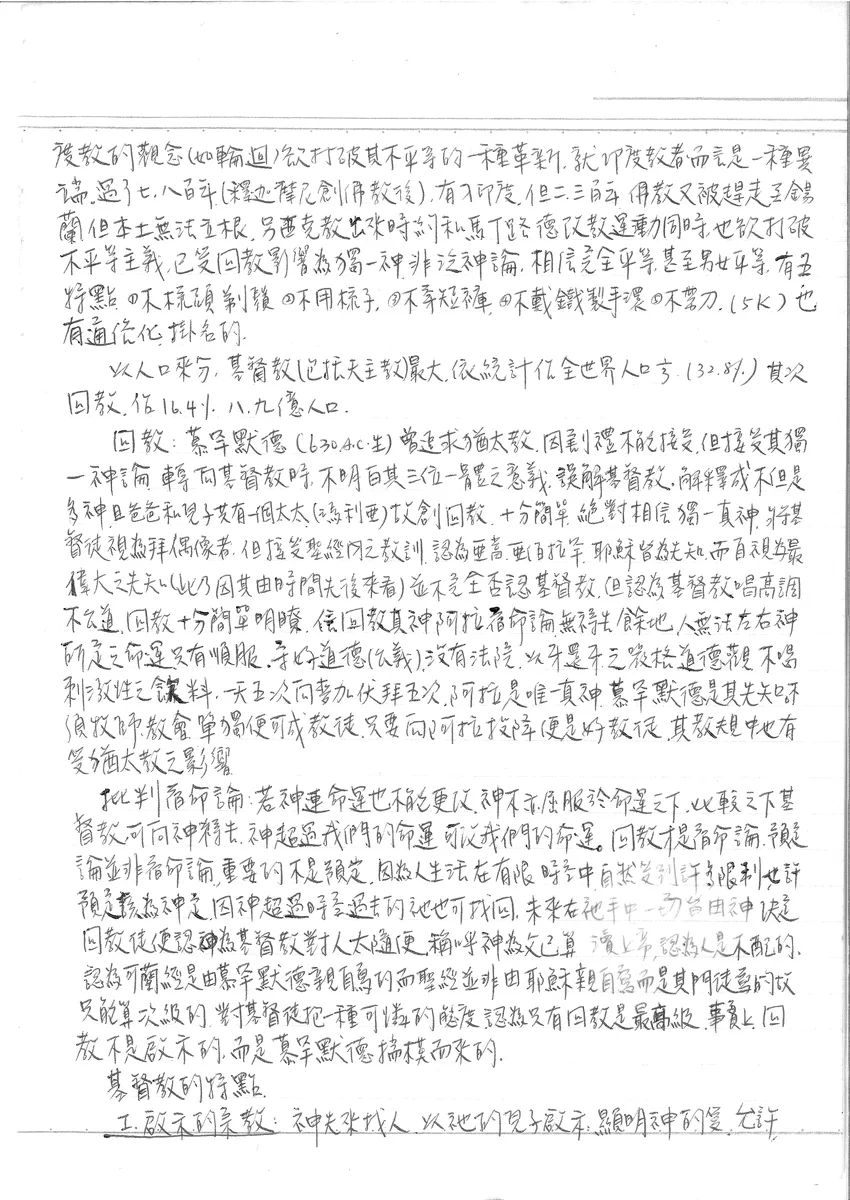 度教的觀念(如輪迴)欲打破其不平等的一種革新.就印度教者而言是一種異
端.過了七.八百年(釋迦摩尼創佛教後).有了印度.但二.三百年佛教又被趕走至錫
蘭.但本土無法立根.另西克教出來時約和馬丁路德改教運動同時.也欲打破
不平等主義.已受回教影響為獨一神非泛神論.相信完全平等.甚至男女平等.有五
特點.①不梳頭剃鬍②不用梳子.③不穿短褲.④不戴鐵製手環⑤不帶刀.(5K)也
有通俗化.掛名的.
以人口來分.基督教(包括天主教)最大.依統計佔全世界人口.(32.8%)其次
回教.佔16.4%.八.九億人口.
回教:慕罕默德(630A.C.生)曾追求猶太教.因割禮不能接受.但接受其獨
一神論.轉向基督教時.不明白其三位一體之意義.誤解基督教.解釋成不但是
多神且爸爸和兒子共有一個太太(瑪利亞)故創回教.十分簡單.絕對相信獨一真神.將基
督徒視為拜偶像者.但接受聖經內之教訓.認為亞當.亞伯拉罕.耶穌皆為先知.而自視為最
偉大之先知(此乃因其由時間先後來看)並不完全否認基督教.但認為基督教唱高調
不公道.回教十分簡單明瞭.信回教真神阿拉宿命論.無禱告餘地.人無法左右神
所定之命運只有順服.守好道德(公義).沒有法院.以牙還牙之嚴格道德觀.不喝
刺激性之飲料.一天五次向麥加伏拜五次.阿拉是唯一真神.慕罕默德是其先知.不
須牧師.教會.單獨便可成教徒.只要向阿拉投降便是好教徒.其教規中也有
受猶太教之影響.
批判宿命論:若神連命運也不能更改.神不亦屈服於命運之下.比較之下基
督教可向神禱告.神超過我們的命運可改我們的命運。回教才是宿命論.預定
論並非宿命論.重要的不是預定.因為人生活在有限時空中自然受到許多限制也許
預定該為神定.因神超過時空過去的祂也可找回.未來在祂手中一切皆由神決定
回教徒便認為基督教對人太隨便.稱呼神為父已算瀆上帝.認為人是不配的.
認為可蘭經是由慕罕默德親自寫的而聖經並非由耶穌親自寫而是其門徒寫的故
只能算次級的.對基督徒把一種可憐的態度認為只有回教是最高級.事實上.回
教不是啟示的.而是慕罕默德揣模而來的.
基督教的特點.
I.啟示的宗教:神先來找人.以祂的兒子啟示.顯明神的愛.允許